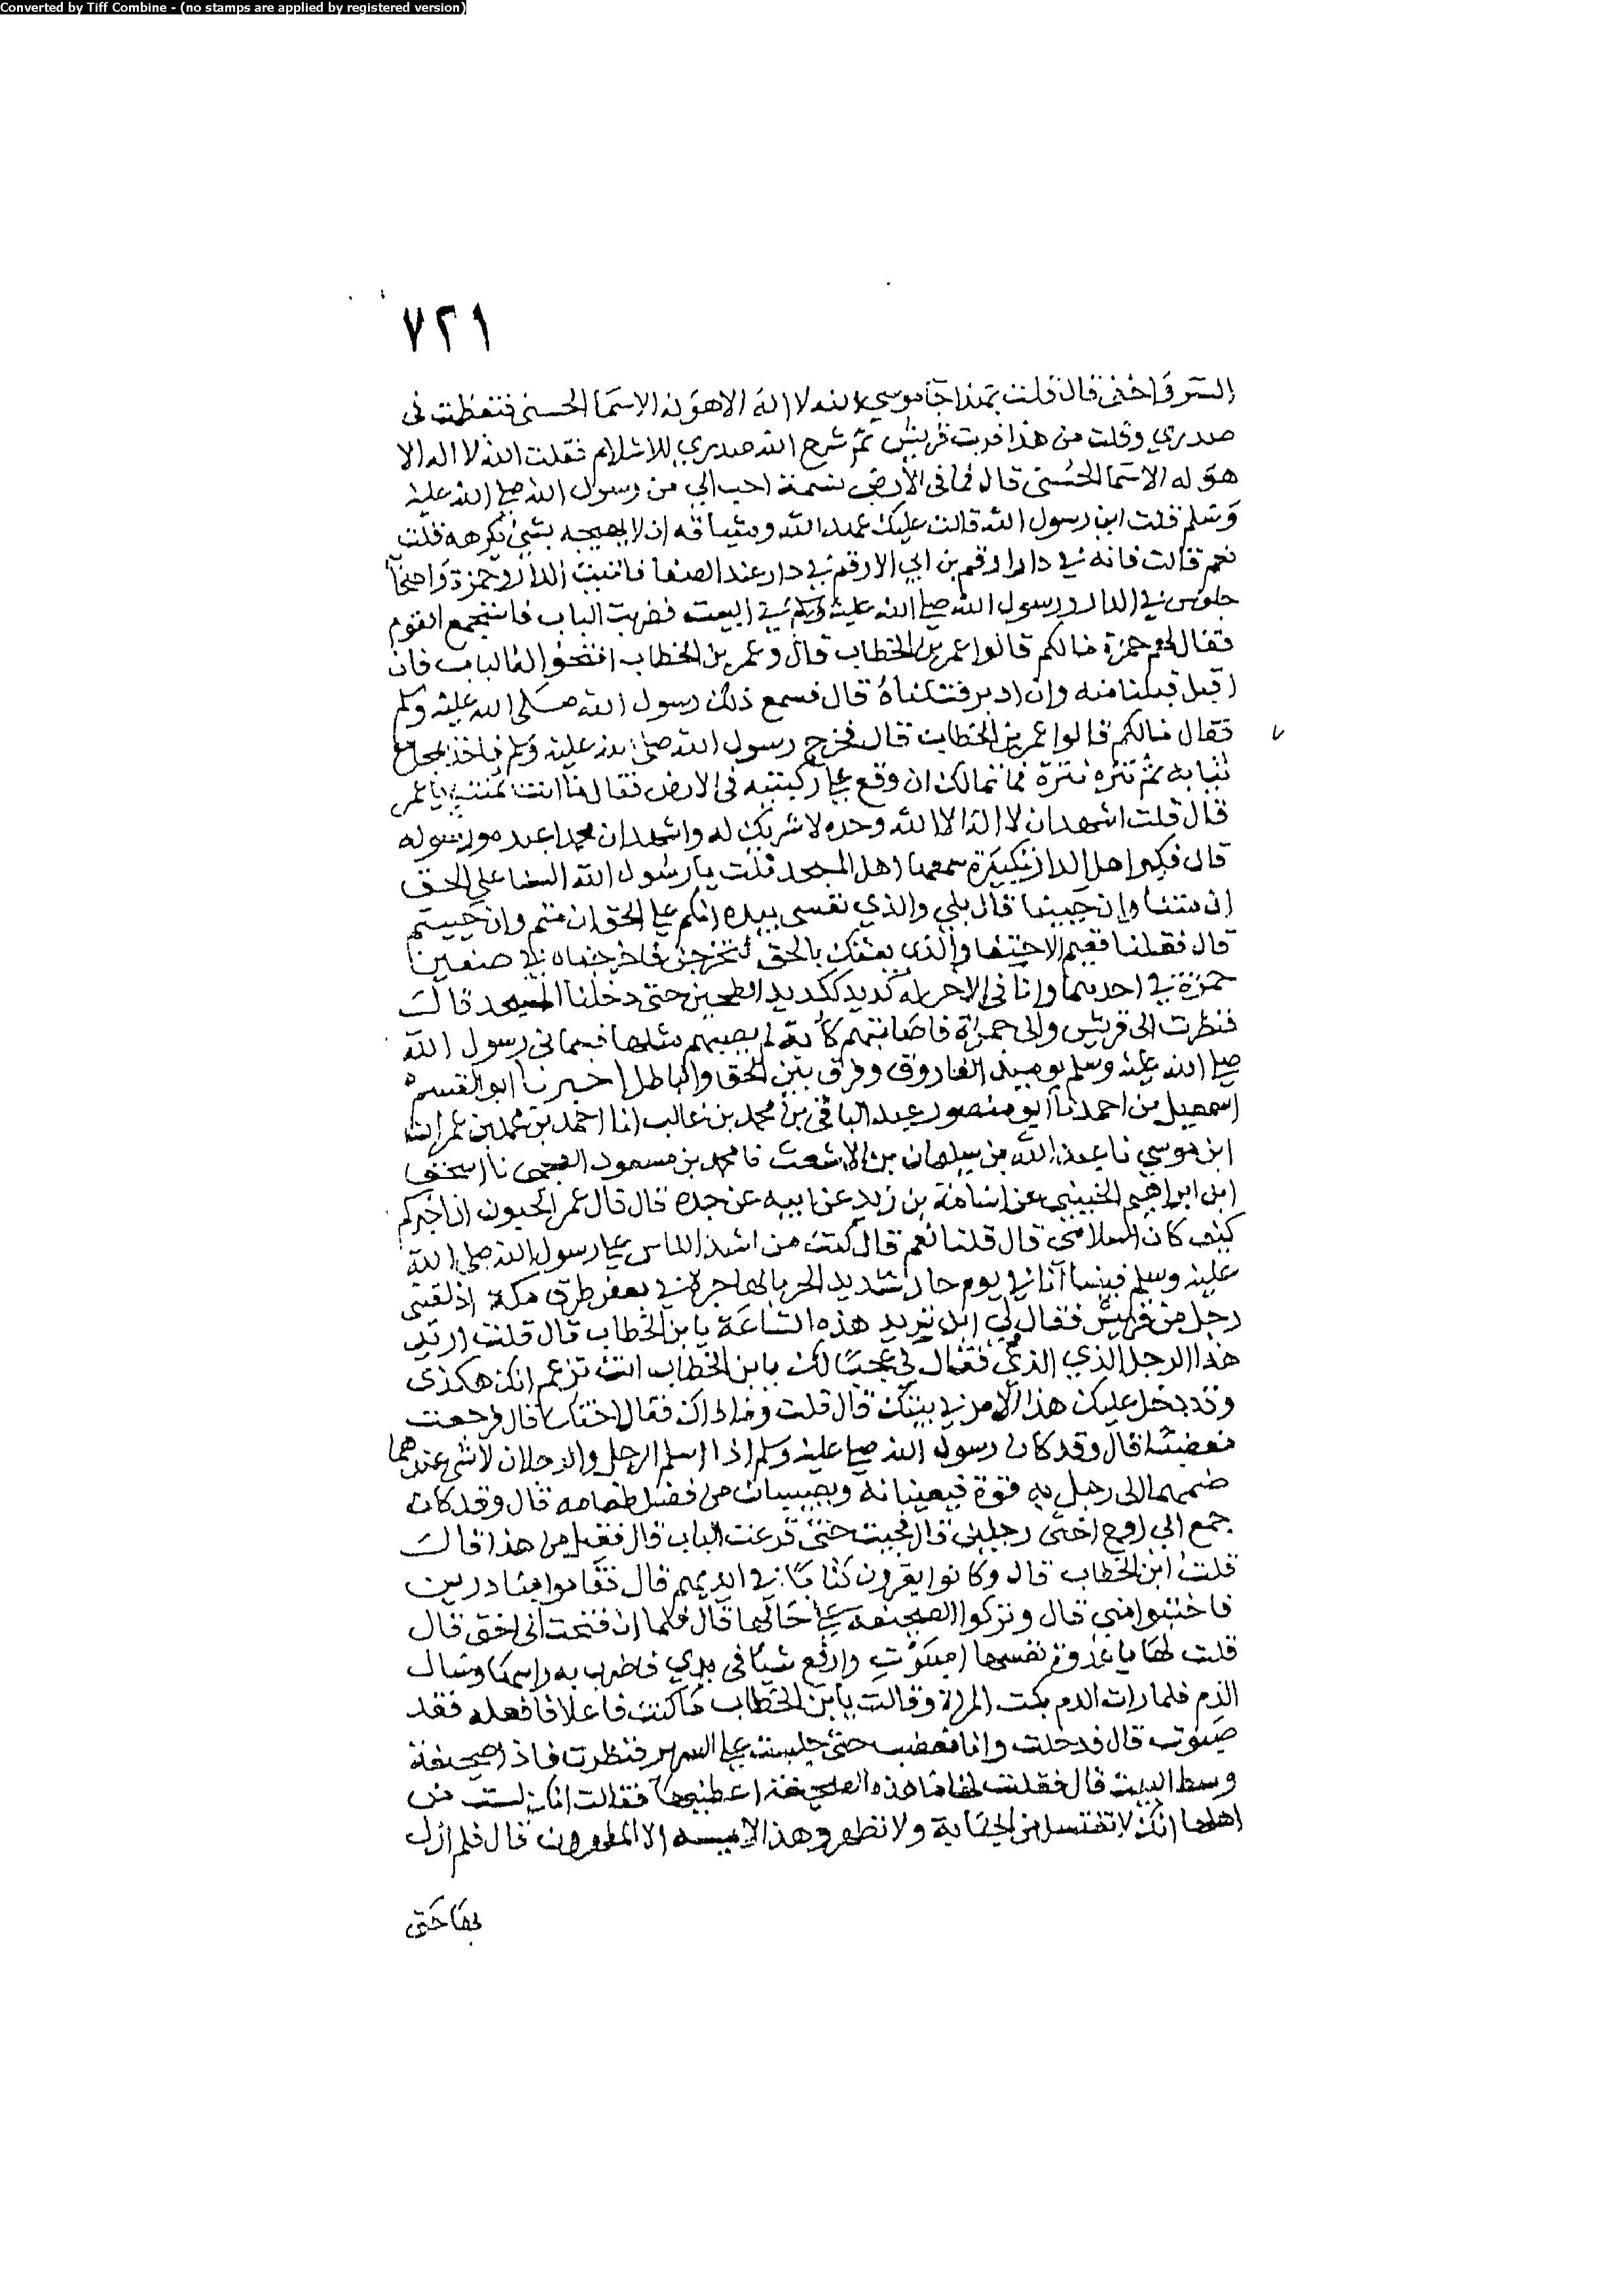 Converted by Tiff Combine - (no stamps are applied by registered version)
٧٢١
السر واخفى قال قلت بهذا جا موسي الله لا اله الا هو له الاسما الحسنى فتعظمت في
صدري وقلت من هذا فرت قريش ثم شرح الله صدري للاسلام فقلت الله لا اله الا
هو له الاسما الحسنى قال فما في الارض نسمة احب الي من رسول الله صلى الله عليه
وسلم قلت اين رسول الله قالت عليك عهد الله وميثاقه ان لا يهيجه بشئ يكرهه قلت
نعم قالت فانه في دار ارقم بن ابي الارقم في دار عند الصفا فاتيت الدار وحمزة واصحابه
جلوس في الدار ورسول الله صلى الله عليه وسلم في البيت فضربت الباب فاستجمع القوم
فقال لهم حمزة مالكم قالوا عمر بن الخطاب قال وعمر بن الخطاب افتحوا له الباب فان
اقبل قبلنا منه وان ادبر قتلناه قال فسمع ذلك رسول الله صلى الله عليه وسلم
فقال مالكم قالوا عمر بن الخطاب قال فخرج رسول الله صلى الله عليه وسلم فاخذ بمجامع
ثيابه ثم نتره نترة فما تمالك ان وقع على ركبتيه في الارض فقال ما انت بمنته يا عمر
قال قلت اشهد ان لا اله الا الله وحده لا شريك له واشهد ان محمدا عبده ورسوله
قال فكبر اهل الدار تكبيرة سمعها اهل المسجد قلت يا رسول الله السنا على الحق
ان متنا وان حيينا قال بلي والذي نفسي بيده انكم على الحق ان متم وان حييتم
قال فقلنا ففيم الاختفا والذي بعثك بالحق لتخرجن فاخرجناه في صفين
حمزة في احدهما وانا في الاخر له كديد ككديد الطحين حتى دخلنا المسجد قال
فنظرت الى قريش والى حمزة فاصابتهم كآبة لم يصبهم مثلها فسماني رسول الله
صلى الله عليه وسلم يوميذ الفاروق وفرق بين الحق والباطل اخبرنا ابو القسم
اسمعيل بن احمد انا ابو منصور عبد الباقي بن محمد بن غالب انا احمد بن محمد بن عمران
ابن موسي نا عبد الله بن سليمان بن الاشعث نا محمد بن مسعود العجمى نا اسحق
ابن ابراهيم الحنيني عن اسامة بن زيد عن ابيه عن جده قال قال عمر اتحبون ان اخبركم
كيف كان اسلامي قال قلنا نعم قال كنت من اشد الناس على رسول الله صلى الله
عليه وسلم فبينا انا في يوم حار شديد الحر بالهاجرة في بعض طرق مكة اذ لقيني
رجل من قريش فقال لي اين تريد هذه الساعة يا بن الخطاب قال قلت اريد
هذا الرجل الذي الذي فقال لي عجبا لك يا بن الخطاب انت تزعم انك هكذى
وقد دخل عليك هذا الامر في بيتك قال قلت وما ذاك فقال اختك قال فرجعت
مغضبا قال وقد كان رسول الله صلى عليه وسلم اذا اسلم الرجل والرجلان لا شى عندهما
ضمهما الى رجل به قوة فيعينانه ويصيبان من فضل طعامه قال وقد كان
جمع الي زوج اختى رجلين قال فجيت حتى قرعت الباب قال فقيل من هذا قال
قلت ابن الخطاب قال وكانوا يقرون كتابا في ايديهم قال فقاموا مبادرين
فاختبوا مني قال وتركوا الصحيفة على حالها قال فلما ان فتحت لى اختى قال
قلت لها يا عدوة نفسها اصبوت وارفع شيا في يدي فاضرب به راسها وسال
الدم فلما رات الدم بكت المراة وقالت يا بن الخطاب ما كنت فاعلا فافعله فقد
صبوت قال فدخلت وانا مغضب حتى جلست على السرير فنظرت فاذا صحيفة
وسط البيت قال فقلت لها ما هذه الصحيفة اعطنيها فقالت انك لست من
اهلها انك لا تغتسل من الجنابة ولا تطهر وهذا لا يمسه الا المطهرون قال فلم ازل
بها حتى